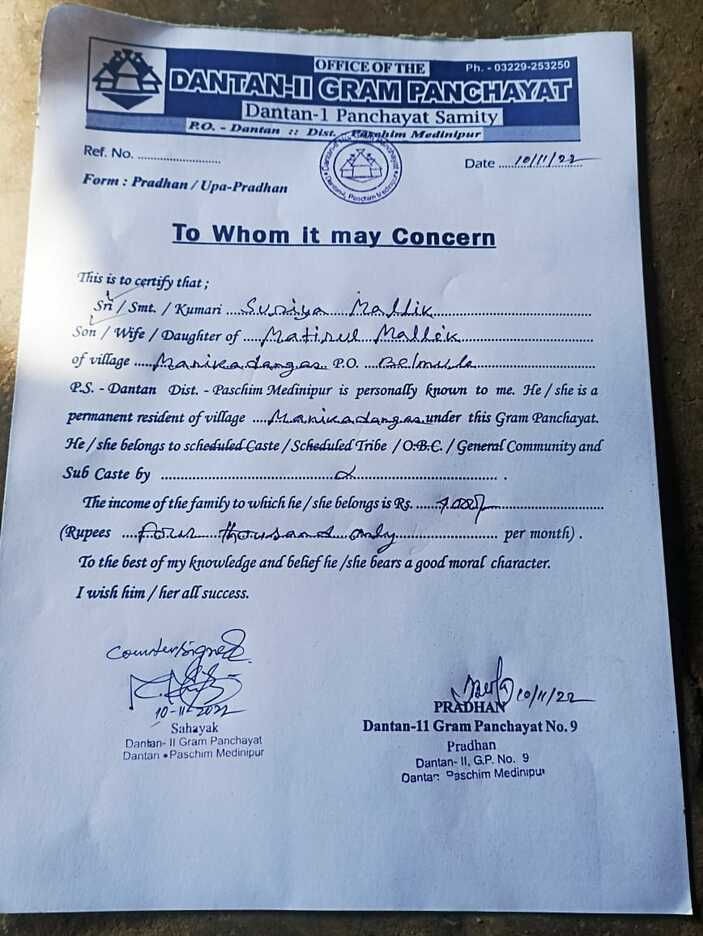 OFFICE OF THE Ph. - 03229-253250
DANTAN-II GRAM PANCHAYAT
Dantan-1 Panchayat Samity
P.O. - Dantan :: Dist. - Paschim Medinipur
Ref. No. .......................... Date ...10/11/22...
Form : Pradhan / Upa-Pradhan
To Whom it may Concern
This is to certify that ;
Sri / Smt. / Kumari ...Suniya Mallik...
Son / Wife / Daughter of ...Matirul Mallik...
of village ...Manikadangas... P.O. ...
P.S. - Dantan Dist. - Paschim Medinipur is personally known to me. He / she is a
permanent resident of village ...Manikadangas...under this Gram Panchayat.
He / she belongs to scheduled Caste / Scheduled Tribe / O.B.C. / General Community and
Sub Caste by ............................................................ .
The income of the family to which he / she belongs is Rs. ......
(Rupees ...four thousand only... per month) .
To the best of my knowledge and belief he /she bears a good moral character.
I wish him / her all success.
Countersigned
10-11-2022
Sahayak
Dantan- II Gram Panchayat
Dantan • Paschim Medinipur
10/11/22
PRADHAN
Dantan-11 Gram Panchayat No. 9
Pradhan
Dantan- II, G.P. No. 9
Dantan Paschim Medinipur